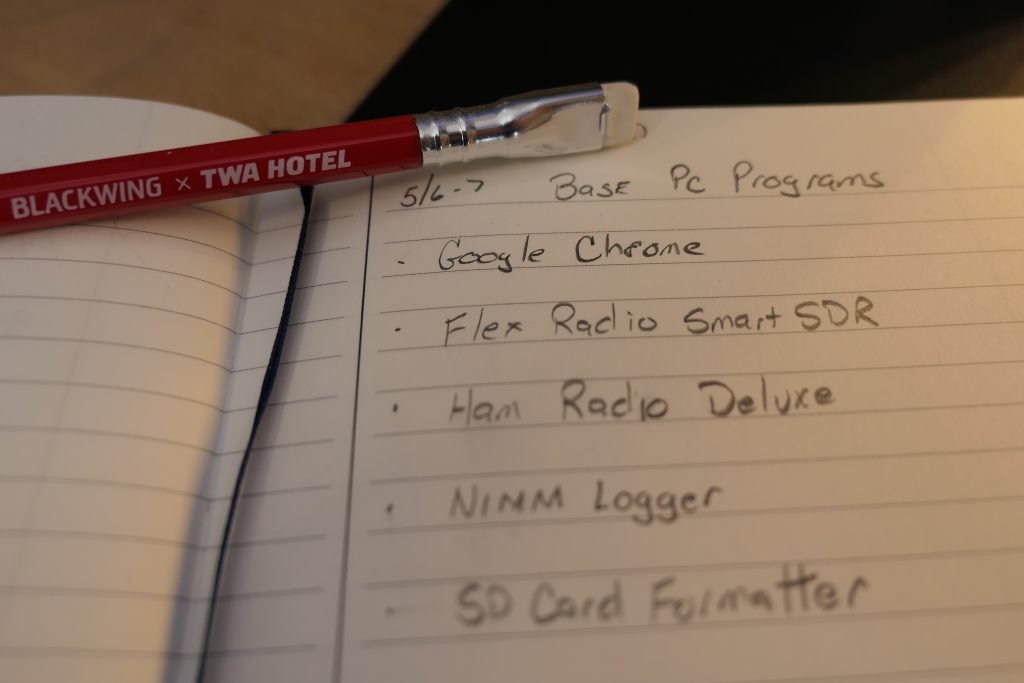 BLACKWING × TWA HOTEL
5/6-7 Base Pc Programs
· Google Chrome
· Flex Radio Smart SDR
· Ham Radio Deluxe
· N1MM Logger
· SD Card Formatter